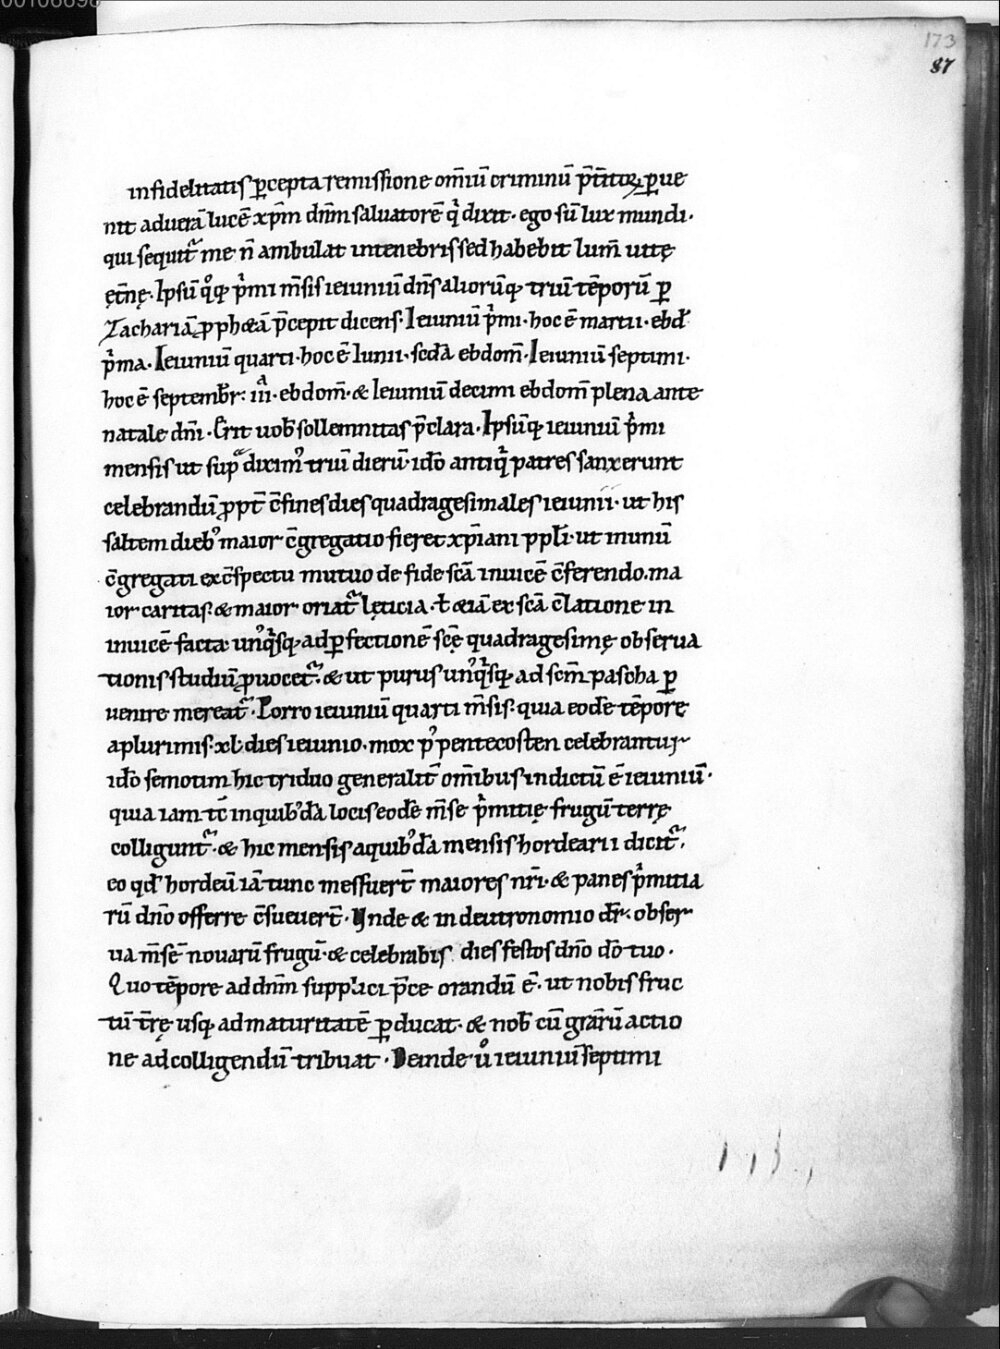 00106698
173
87
infidelitatis ꝑcepta remissione om̄iū criminū p̄t̄itoꝝ ꝑue
nit adueram lucē xp̄m dn̄m saluatorē qͥ dixit· ego sū lux mundi·
qui sequit᷑ me n̄ ambulat intenebris sed habebit lum̄ uitę
ęt̄nę· Ipsū qͦqꝫ pͥmi m̄sis ieiuniū dn̄s aliorūqꝫ triū tēporū ꝑ
Zachariā ꝓph&ā p̄cepit dicens· Ieiuniū pͥmi· hoc ē martii· ebd̄
pͥma· Ieiuniū quarti· hoc ē Iunii· scd̄a ebdom̄· Ieiuniū septimi·
hoc ē septemb̄r· iii· ebdom̄· & Ieiuniū decimi ebdom̄ plena ante
natale dn̄i· Erit uob̄ sollemnitas p̄clara· Ipsūqꝫ ieiuniū pͥmi
mensis ut supᷓ diximꝰ triū dierū· idō antiqͥ patres sanxerunt
celebrandū ꝓpt̄ c̄fines dies quadragesimales ieiunii· ut his
saltem diebꝰ maior c̄gregatio fieret xp̄iani ppl̄i· ut inunū
c̄gregati ex c̄spectu mutuo de fide sc̄a inuicē c̄ferendo· ma
ior caritas· & maior oriat᷑ lęticia· ł &iā ex sc̄a c̄latione in
inuicē facta unꝰqͥsqꝫ ad ꝑfectionē sc̄ę quadragesimę obserua
tionis studiū ꝓuocet᷑· & ut purus unꝰqͥsqꝫ ad sc̄m pascha ꝑ
uenire mereat᷑· Porro ieiuniū quarti m̄sis· quia eodē tēpore
aplurimis· xl· dies ieiunio· mox pꝰ pentecosten celebrantur
idō semotim hic triduo generalit̄ om̄ibus indictū ē ieiuniū·
quia iam tc̄ inquibꝰdā locis eodē m̄se pͥmitię frugū terrę
colligunt᷑· & hic mensis aquibꝰdā mensis hordearii dicit᷑·
eo qd̄ hordeū iā tunc messuer̄t maiores nr̄i· & panes pͥmitia
rū dn̄o offerre c̄sueuer̄t· Vnde & in deutronomio dr̄· obser
ua m̄sē nouarū frugū· & celebrabis dies festos dn̄o dō tuo·
Quo tēpore ad dn̄m supplici p̄ce orandū ē· ut nobis fruc
tū tr̄ę usqꝫ ad maturitatē ꝑducat· & nob̄ cū grārū actio
ne ad colligendū tribuat· Deinde ūͦ ieiuniū septimi